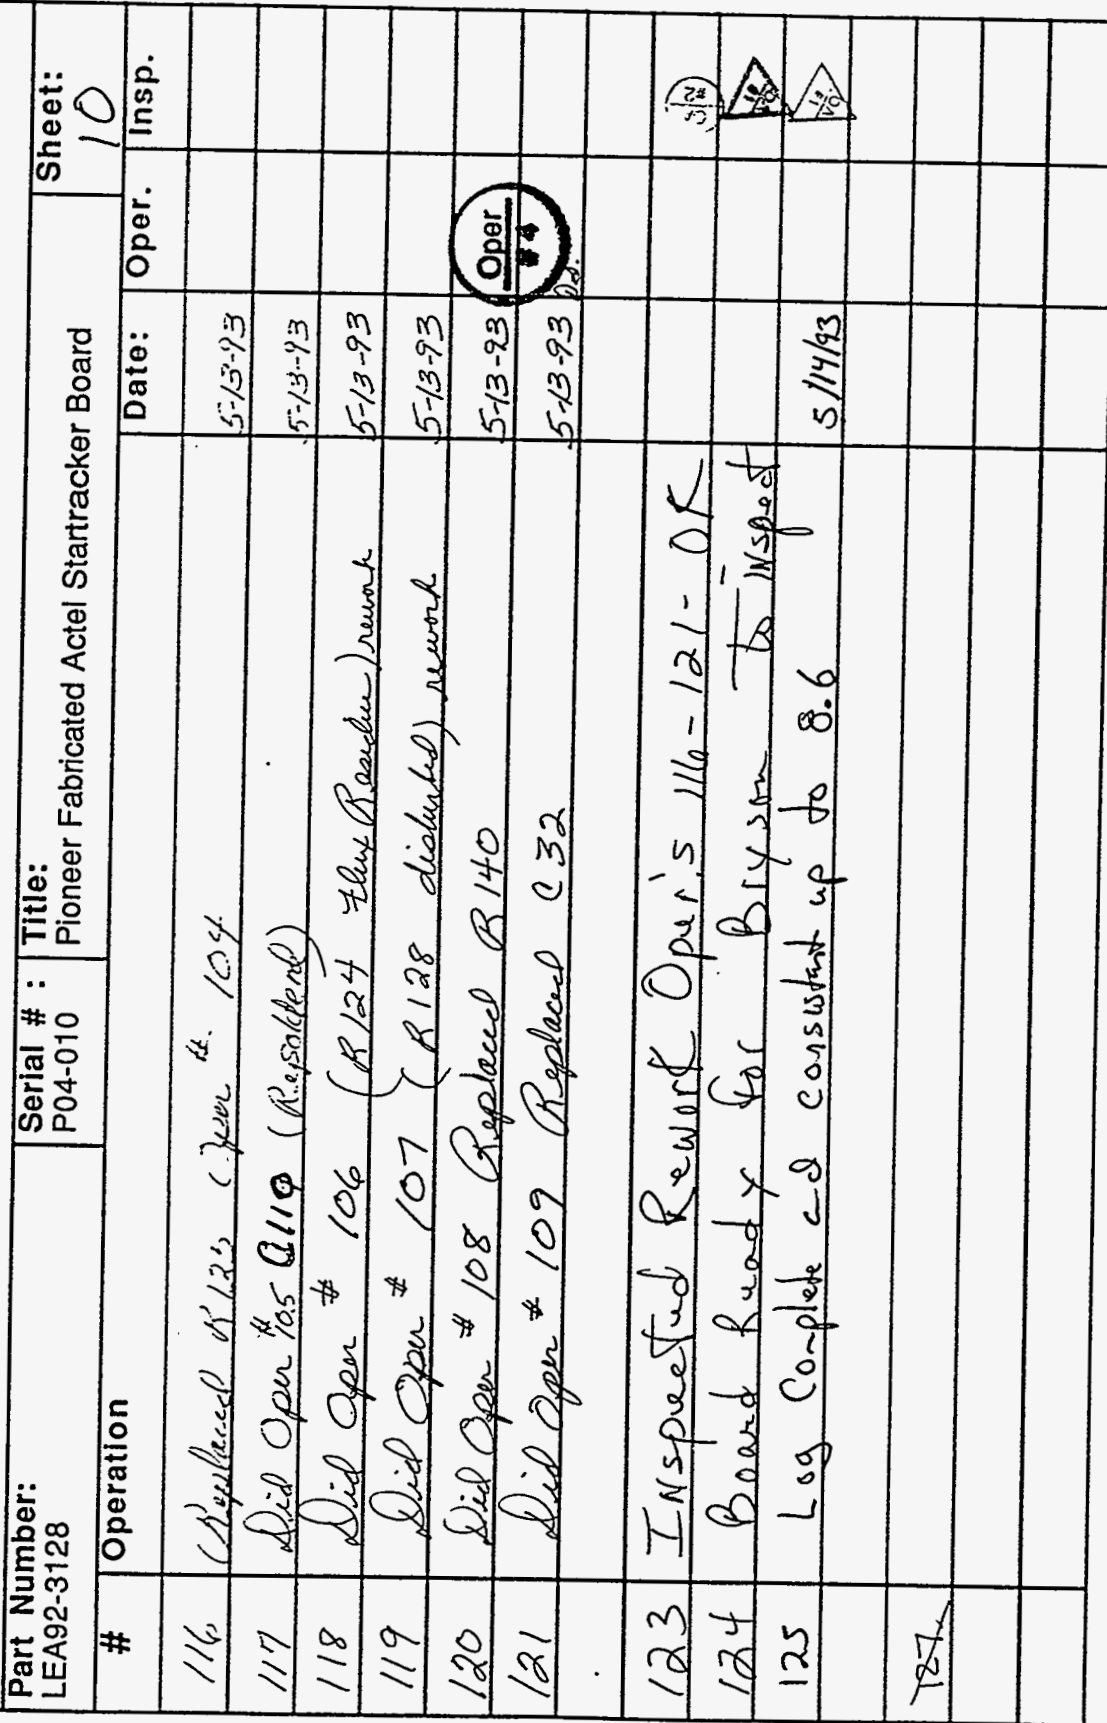 Part Number:
LEA92-3128
Serial # :
P04-010
Title:
Pioneer Fabricated Actel Startracker Board
Sheet:
10
# Operation Date: Oper. Insp.
116 Replaced R123 Oper # 104 5-13-93
117 Did Oper # 105 (Resoldered) 5-13-93
118 Did Oper # 106 (R124 Flux Residue) rework 5-13-93
119 Did Oper # 107 (R128 disturbed) rework 5-13-93
120 Did Oper # 108 Replaced R140 5-13-93
121 Did Oper # 109 Replaced C32 5-13-93
Oper
#4
123 Inspected Rework Oper's 116-121- OK
#2
124 Board Ready for Bryson To inspect
125 Log Complete and consistant up to 8.6 5/14/93
127